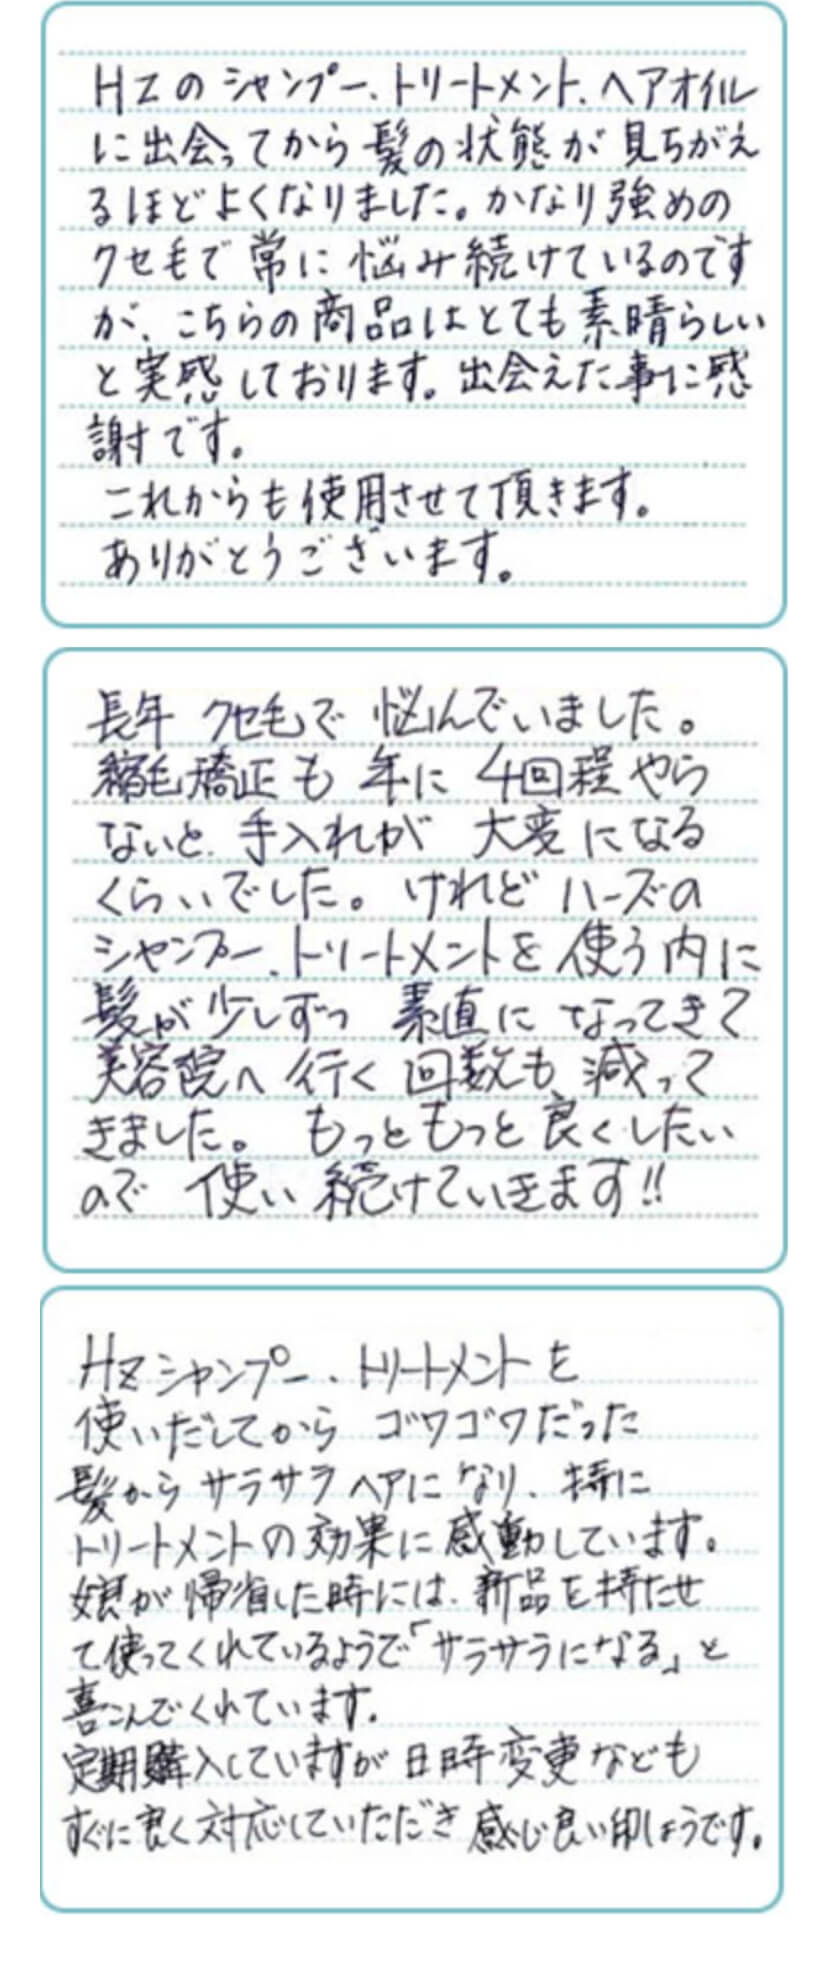 HZのシャンプー、トリートメント、ヘアオイル
に出会ってから髪の状態が見ちがえ
るほどよくなりました。かなり強めの
クセ毛で常に悩み続けているのです
が、こちらの商品はとても素晴らしい
と実感しております。出会えた事に感
謝です。
これからも使用させて頂きます。
ありがとうございます。
長年クセ毛で悩んでいました。
縮毛矯正も年に4回程やら
ないと、手入れが大変になる
くらいでした。けれどハーズの
シャンプー、トリートメントを使う内に
髪が少しずつ素直になってきて
美容院へ行く回数も減って
きました。もっともっと良くしたい
ので使い続けていきます!!
HZシャンプー、トリートメントを
使いだしてからゴワゴワだった
髪からサラサラヘアになり、特に
トリートメントの効果に感動しています。
娘が帰省した時には、新品を持たせ
て使ってくれているようで「サラサラになる」と
喜こんでくれています。
定期購入していますが日時変更なども
すぐに良く対応していただき感じ良い印しょうです。